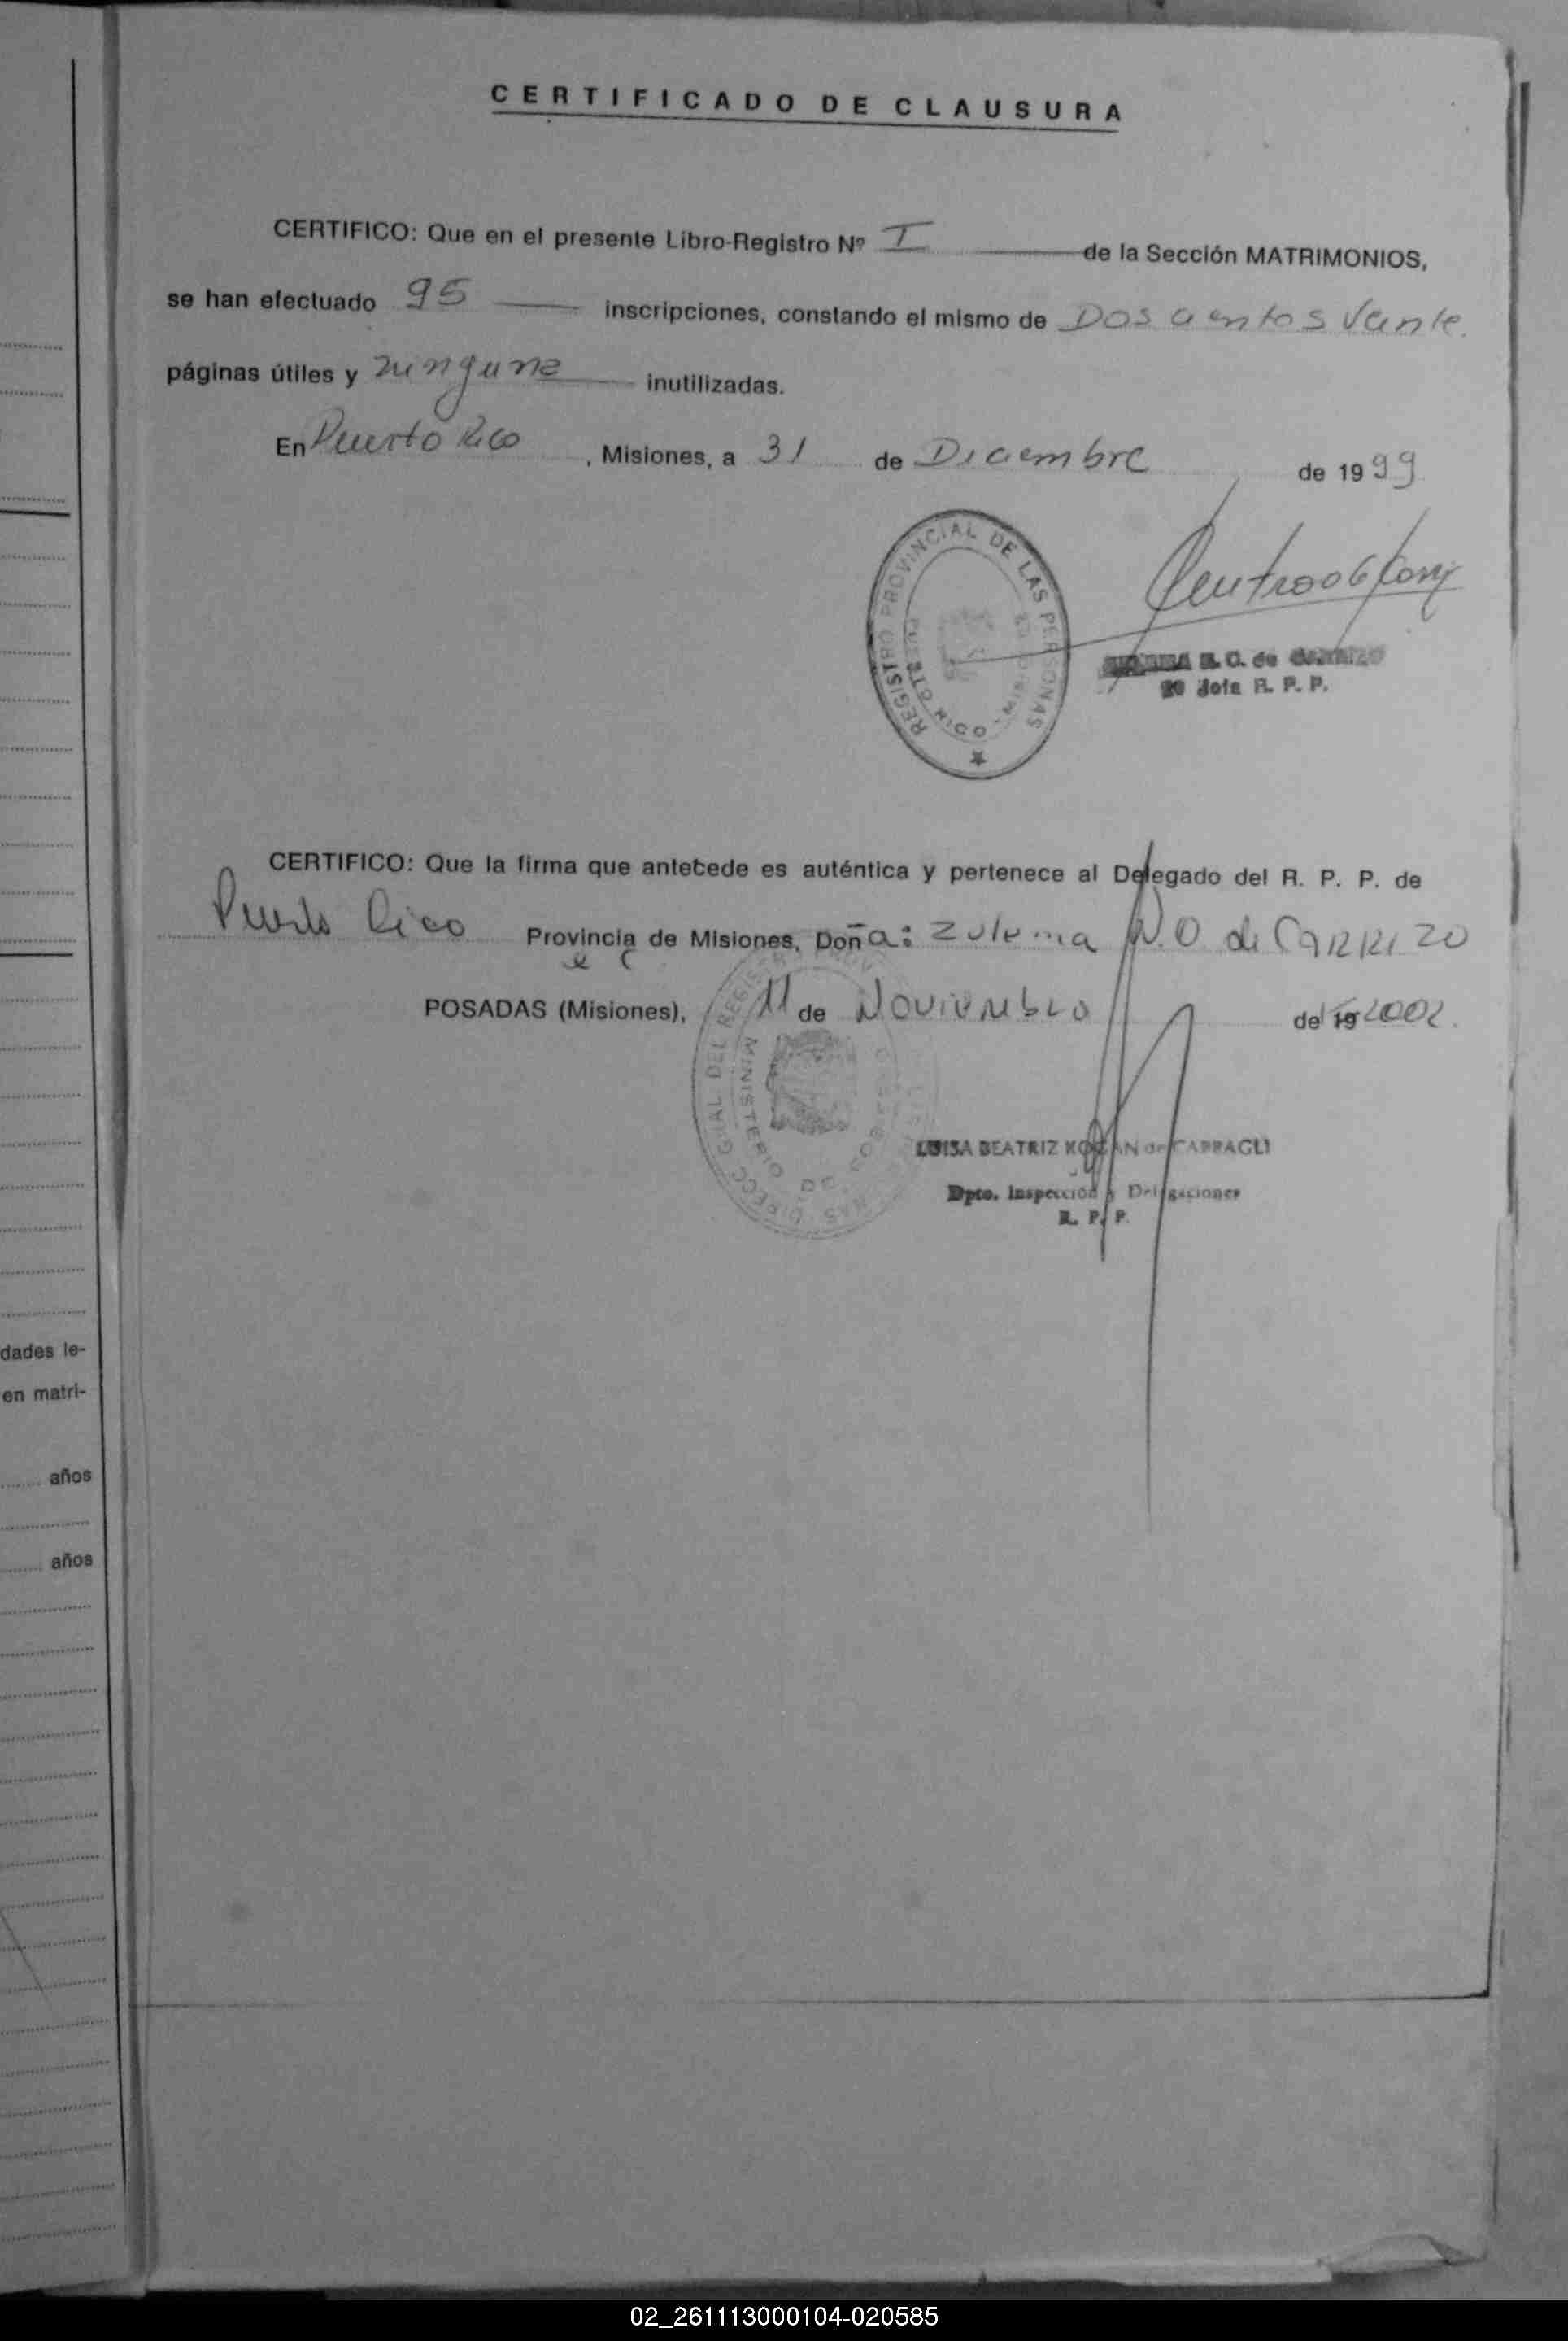 CERTIFICADO DE CLAUSURA
CERTIFICO: Que en el presente Libro-Registro Nº I de la Sección MATRIMONIOS,
se han efectuado 95 inscripciones, constando el mismo de Doscientos Veinte.
páginas útiles y ninguna inutilizadas.
En Puerto Rico, Misiones, a 31 de Diciembre de 1999
REGISTRO PROVINCIAL DE LAS PERSONAS
PUERTO RICO
R. O. de
Jefa R. P. P.
CERTIFICO: Que la firma que antecede es auténtica y pertenece al Delegado del R. P. P. de
Puerto Rico Provincia de Misiones, Doña: Zulema R.O. de CARRIZO
POSADAS (Misiones), 11 de Noviembre de 19 2002.
MINISTERIO DE GOBIERNO
LUISA BEATRIZ de
Dpto. Inspección y Delegaciones
R. P. P.
dades le-
en matri-
años
años
02_261113000104-020585